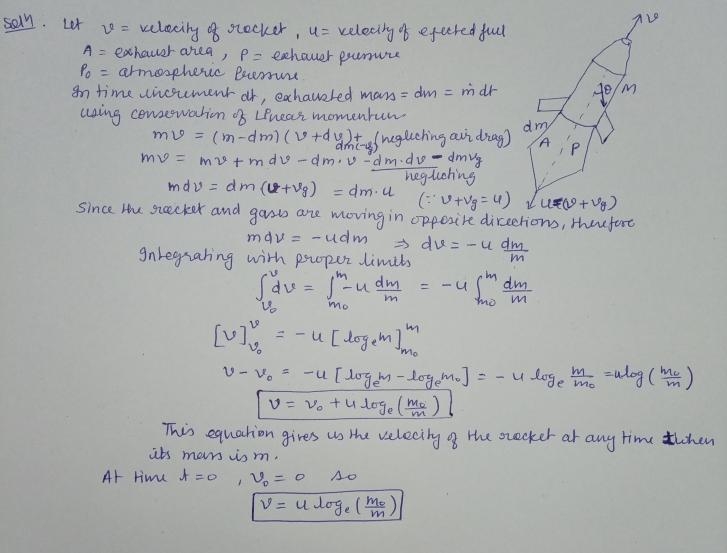 Soln. Let v = velocity of rocket, u = velocity of ejected fuel
A = exhaust area, P = exhaust pressure
P₀ = atmospheric Pressure
In time increment dt, exhausted mass = dm = ṁ dt
using conservation of Linear momentum
mv = (m-dm)(v+dv)+ dm(-vg) (neglecting air drag)
mv = mv + mdv - dm.v - dm.dv - dmvg
neglecting
mdv = dm(v+vg) = dm.u (∵ v+vg = u)
Since the rocket and gases are moving in opposite directions, therefore
mdv = -udm ⇒ dv = -u dm/m
Integrating with proper limits
∫_{v₀}^{v} dv = ∫_{m₀}^{m} -u dm/m = -u ∫_{m₀}^{m} dm/m
[v]_{v₀}^{v} = -u [logₑm]_{m₀}^{m}
v - v₀ = -u [logₑm - logₑm₀] = -u logₑ m/m₀ = ulog(m₀/m)
v = v₀ + u logₑ(m₀/m)
This equation gives us the velocity of the rocket at any time t when
its mass is m.
At time t=0, v₀ = 0 so
v = u logₑ(m₀/m)
v
M
dm
A
P
u=(v+vg)